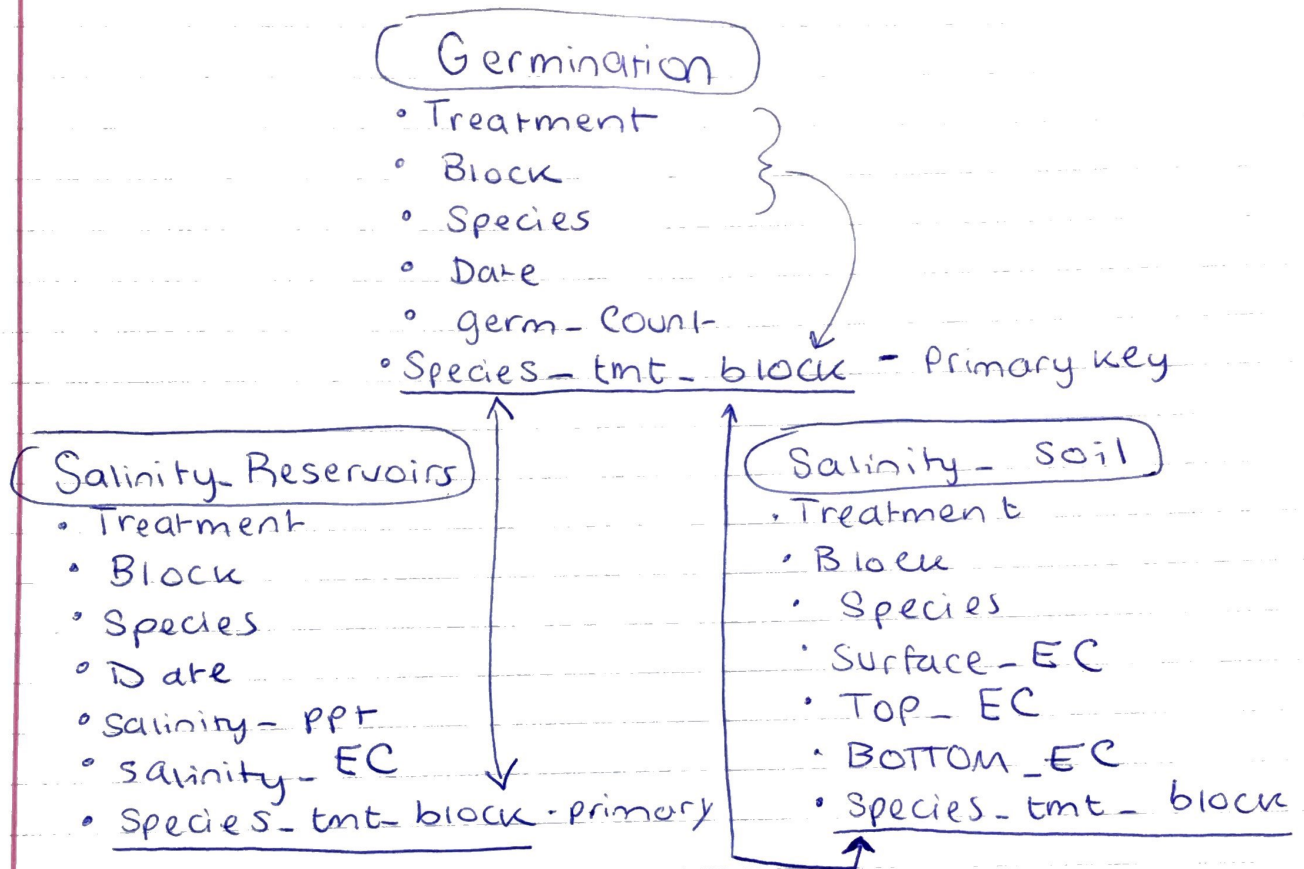 Germination
• Treatment
• Block
• Species
• Date
• germ_Count
• Species_tmt_block - Primary key
Salinity_Reservoirs
• Treatment
• Block
• Species
• Date
• Salinity_ppt
• Salinity_EC
• Species_tmt_block - primary
Salinity_Soil
• Treatment
• Block
• Species
• Surface_EC
• TOP_EC
• BOTTOM_EC
• Species_tmt_block